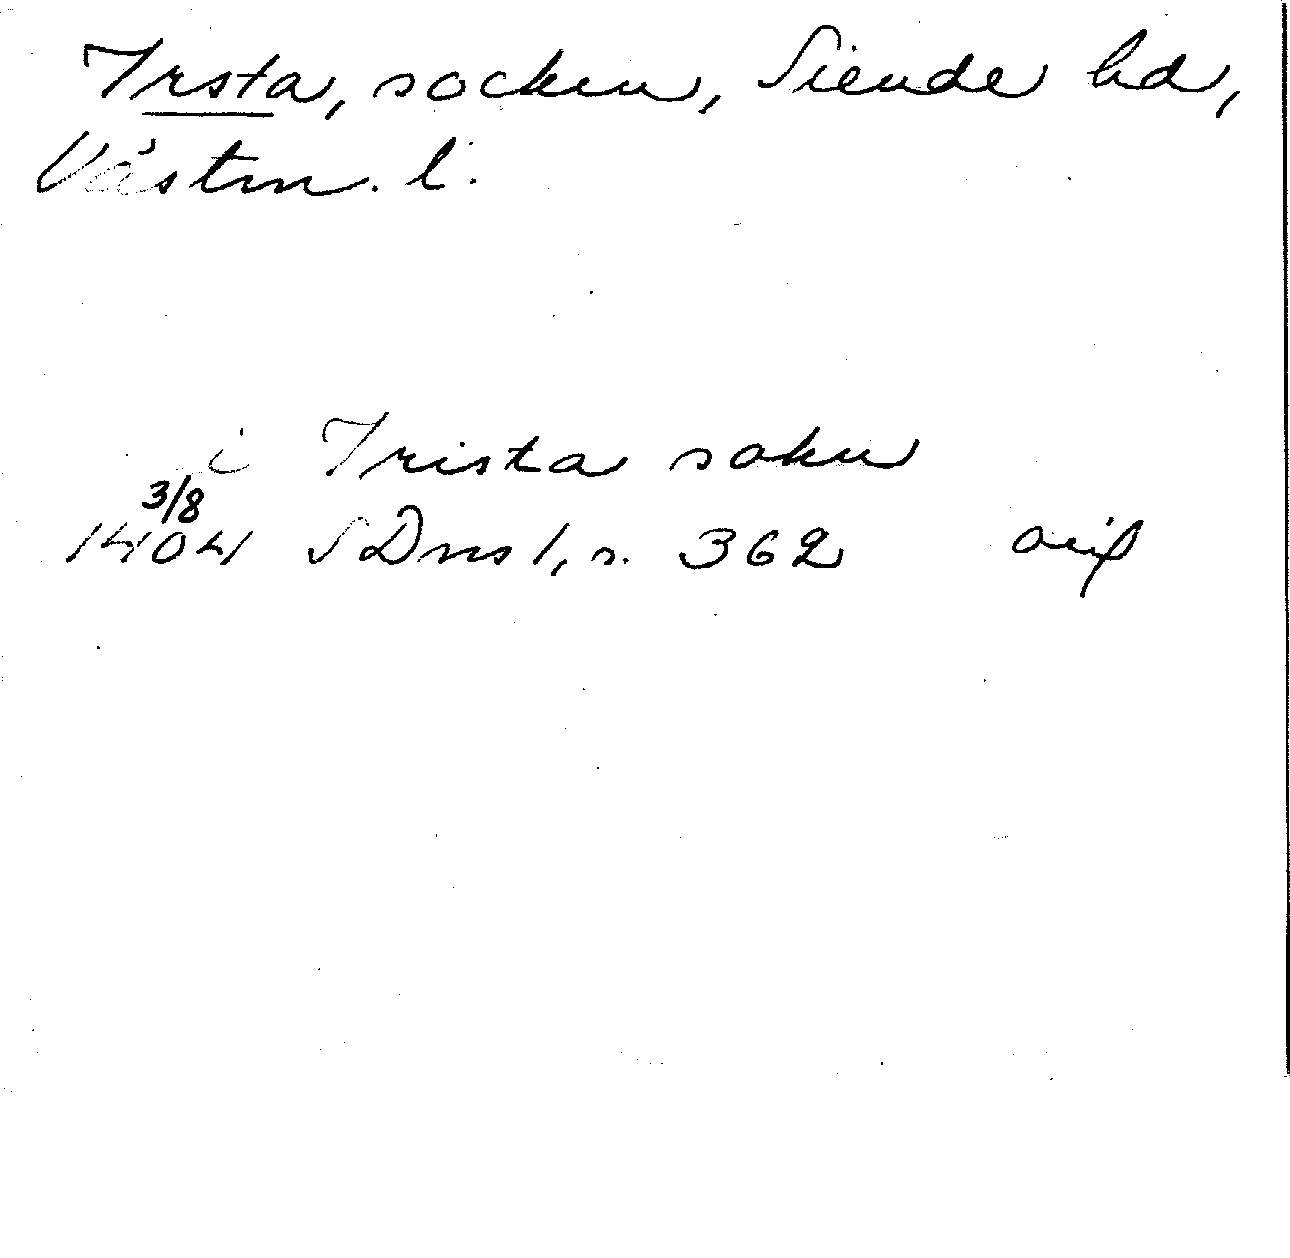 Irsta, socken, Siende hd,
Västm. l.
i Irista sokn
3/8
1404 SDns 1, s. 362 orig